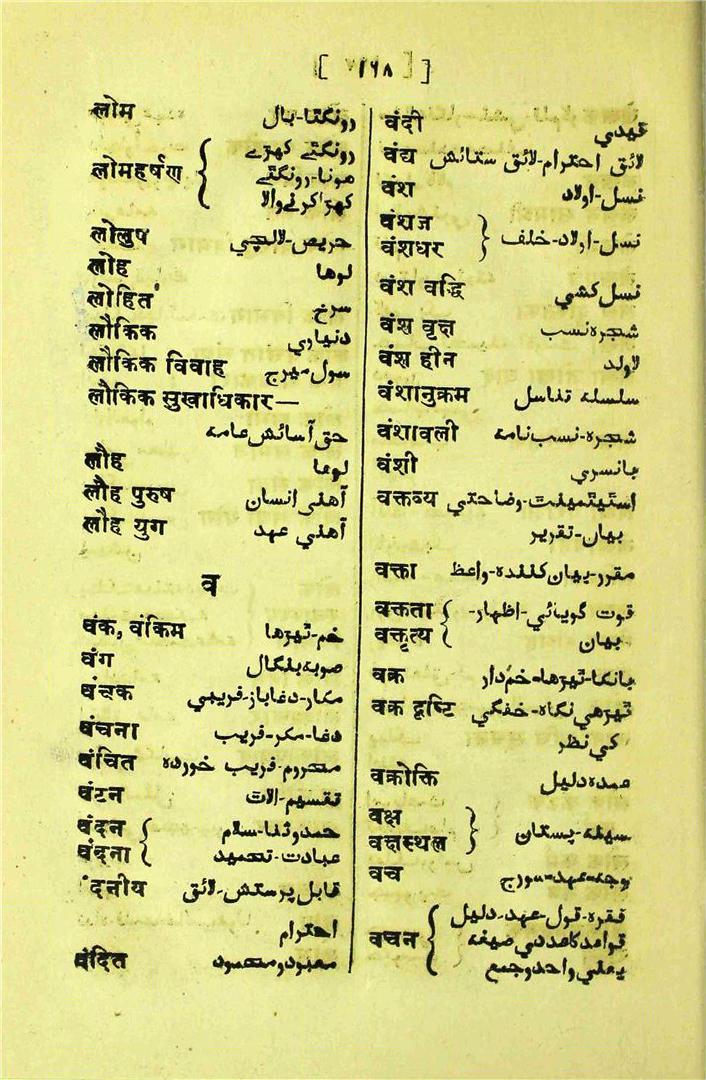 [ ١٦٨ ]
लोम رونگٹا-بال
लोमहर्षण { رونگٹے کھڑے
ہونا-رونگٹے
کھڑا کرنے والا
लोलुप حریص-لالچی
लोह لوها
लोहित سرخ
लौकिक دنیاوی
लौकिक विवाह سول میرج
लौकिक सुखाधिकार—
حق آسائش عامہ
लौह لوها
लौह पुरुष آهنی انسان
लौह युग آهنی عہد
व
वंक, वंकिम خم-ٹیڑها
वंग صوبہ بنگال
वंचक مکار-دغاباز-فریبی
वंचना دغا-مکر-فریب
वंचित محروم-فریب خوردہ
वंटन تقسیم-الاٹ
वंदन } حمدوثنا-سلام
वंदना } عبادت-تحمید
ंदनीय قابل پرستش-لائق
احترام
वंदित معبود و محمود
वंदी قیدی
वंद्य لائق احترام-لائق ستائش
वंश نسل-اولاد
वंशज }
वंशधर } نسل-اولاد-خلف
वंश वद्धि نسل کشی
वंश वृक्ष شجرہ نسب
वंश हीन لاولد
वंशानुक्रम سلسلہ تناسل
वंशावली شجرہ-نسب نامہ
वंशी بانسری
वक्तव्य اسٹیٹمینٹ-وضاحتی
بیان-تقریر
वक्ता مقرر-بیان کنندہ-واعظ
वक्तता { قوت گویائی-اظهار-
वक्तृत्य { بیان
वक्र بانکا-ٹیڑها-خم دار
वक्र दृष्टि ٹیڑهی نگاہ-خفگی
کی نظر
वक्रोक्ति عمدہ دلیل
वक्ष }
वक्षस्थल } سینہ-پستان
वच وچہ-عہد-سورج
वचन { فقرہ-قول-عہد-دلیل
قواعد کا عددی صیغہ
یعنی واحد و جمع